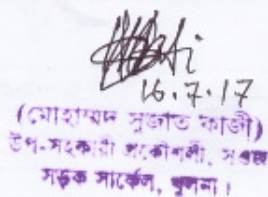 16.7.17
(মোহাম্মদ সুজাত কাজী)
উপ-সহকারী প্রকৌশলী, সওজ
সড়ক সার্কেল, খুলনা।